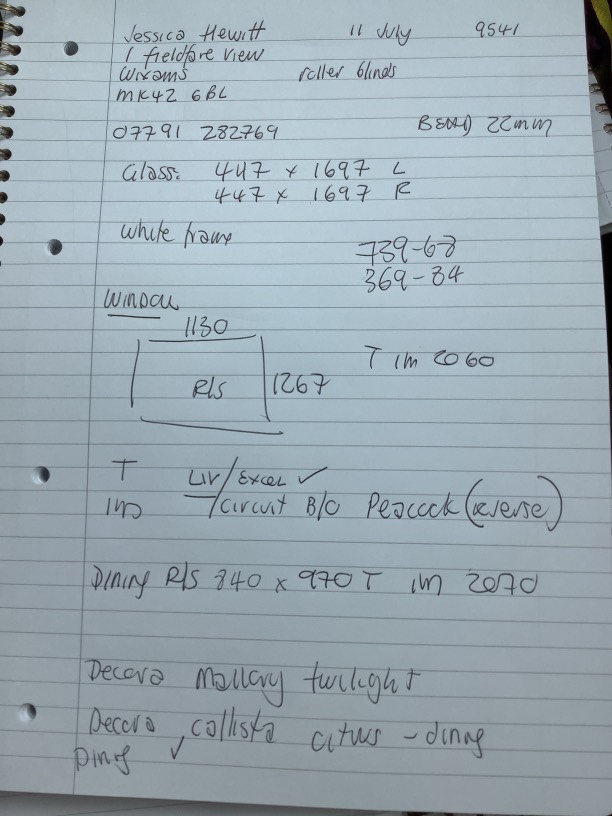 Jessica Hewitt 11 July 9541
1 fieldfare view
Wixams roller blinds
MK42 6BL
07791 282769 BEAD 22mm
Glass: 447 x 1697 L
447 x 1697 R
White frame
739-68
369-84
WINDOW
1130
R/S 1267 T 1m 2060
T LIV/Excel ✓
1m /circuit B/O Peacock (reverse)
Dining R/S 840 x 970 T 1m 2070
Decora Mallory twilight
Decora callista citrus - dining
Dining ✓